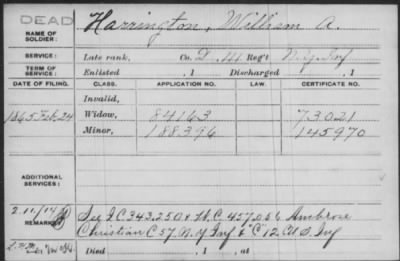 DEAD
NAME OF SOLDIER: Harrington, William A.
SERVICE: Late rank, Co. D, 141 Reg't N.Y. Inf
TERM OF SERVICE: Enlisted , 1 Discharged , 1
DATE OF FILING. CLASS. APPLICATION NO. LAW. CERTIFICATE NO.
Invalid,
1865 Feb. 24 Widow, 84163 73021
Minor, 188396 145970
ADDITIONAL SERVICES:
2.11/14
REMARKS: See I C 343.250 & W.C 457.056 Ambrose
Christian C 57. N.Y Inf & C 12 U.S. Inf
Died , 1 , at